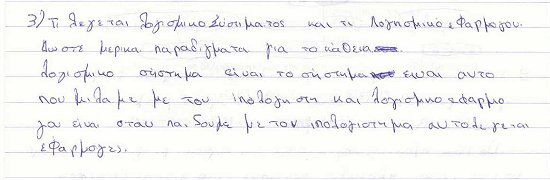 3) Τι λεγεται λογισμικο συστιματος και τι λογησμικο εφαρμογου.
Δωστε μερικα παραδιγματα για το καθενα
λογισμικο σηστημα ειναι το σηστημα ειναι αυτο
που μιλαμε με τον ιπολογηστη και λογισμικο εφαρμο
γα ειναι οταν παιδουμε με τον ιπολογιστημα αυτο λεγεται
εφαρμογες.